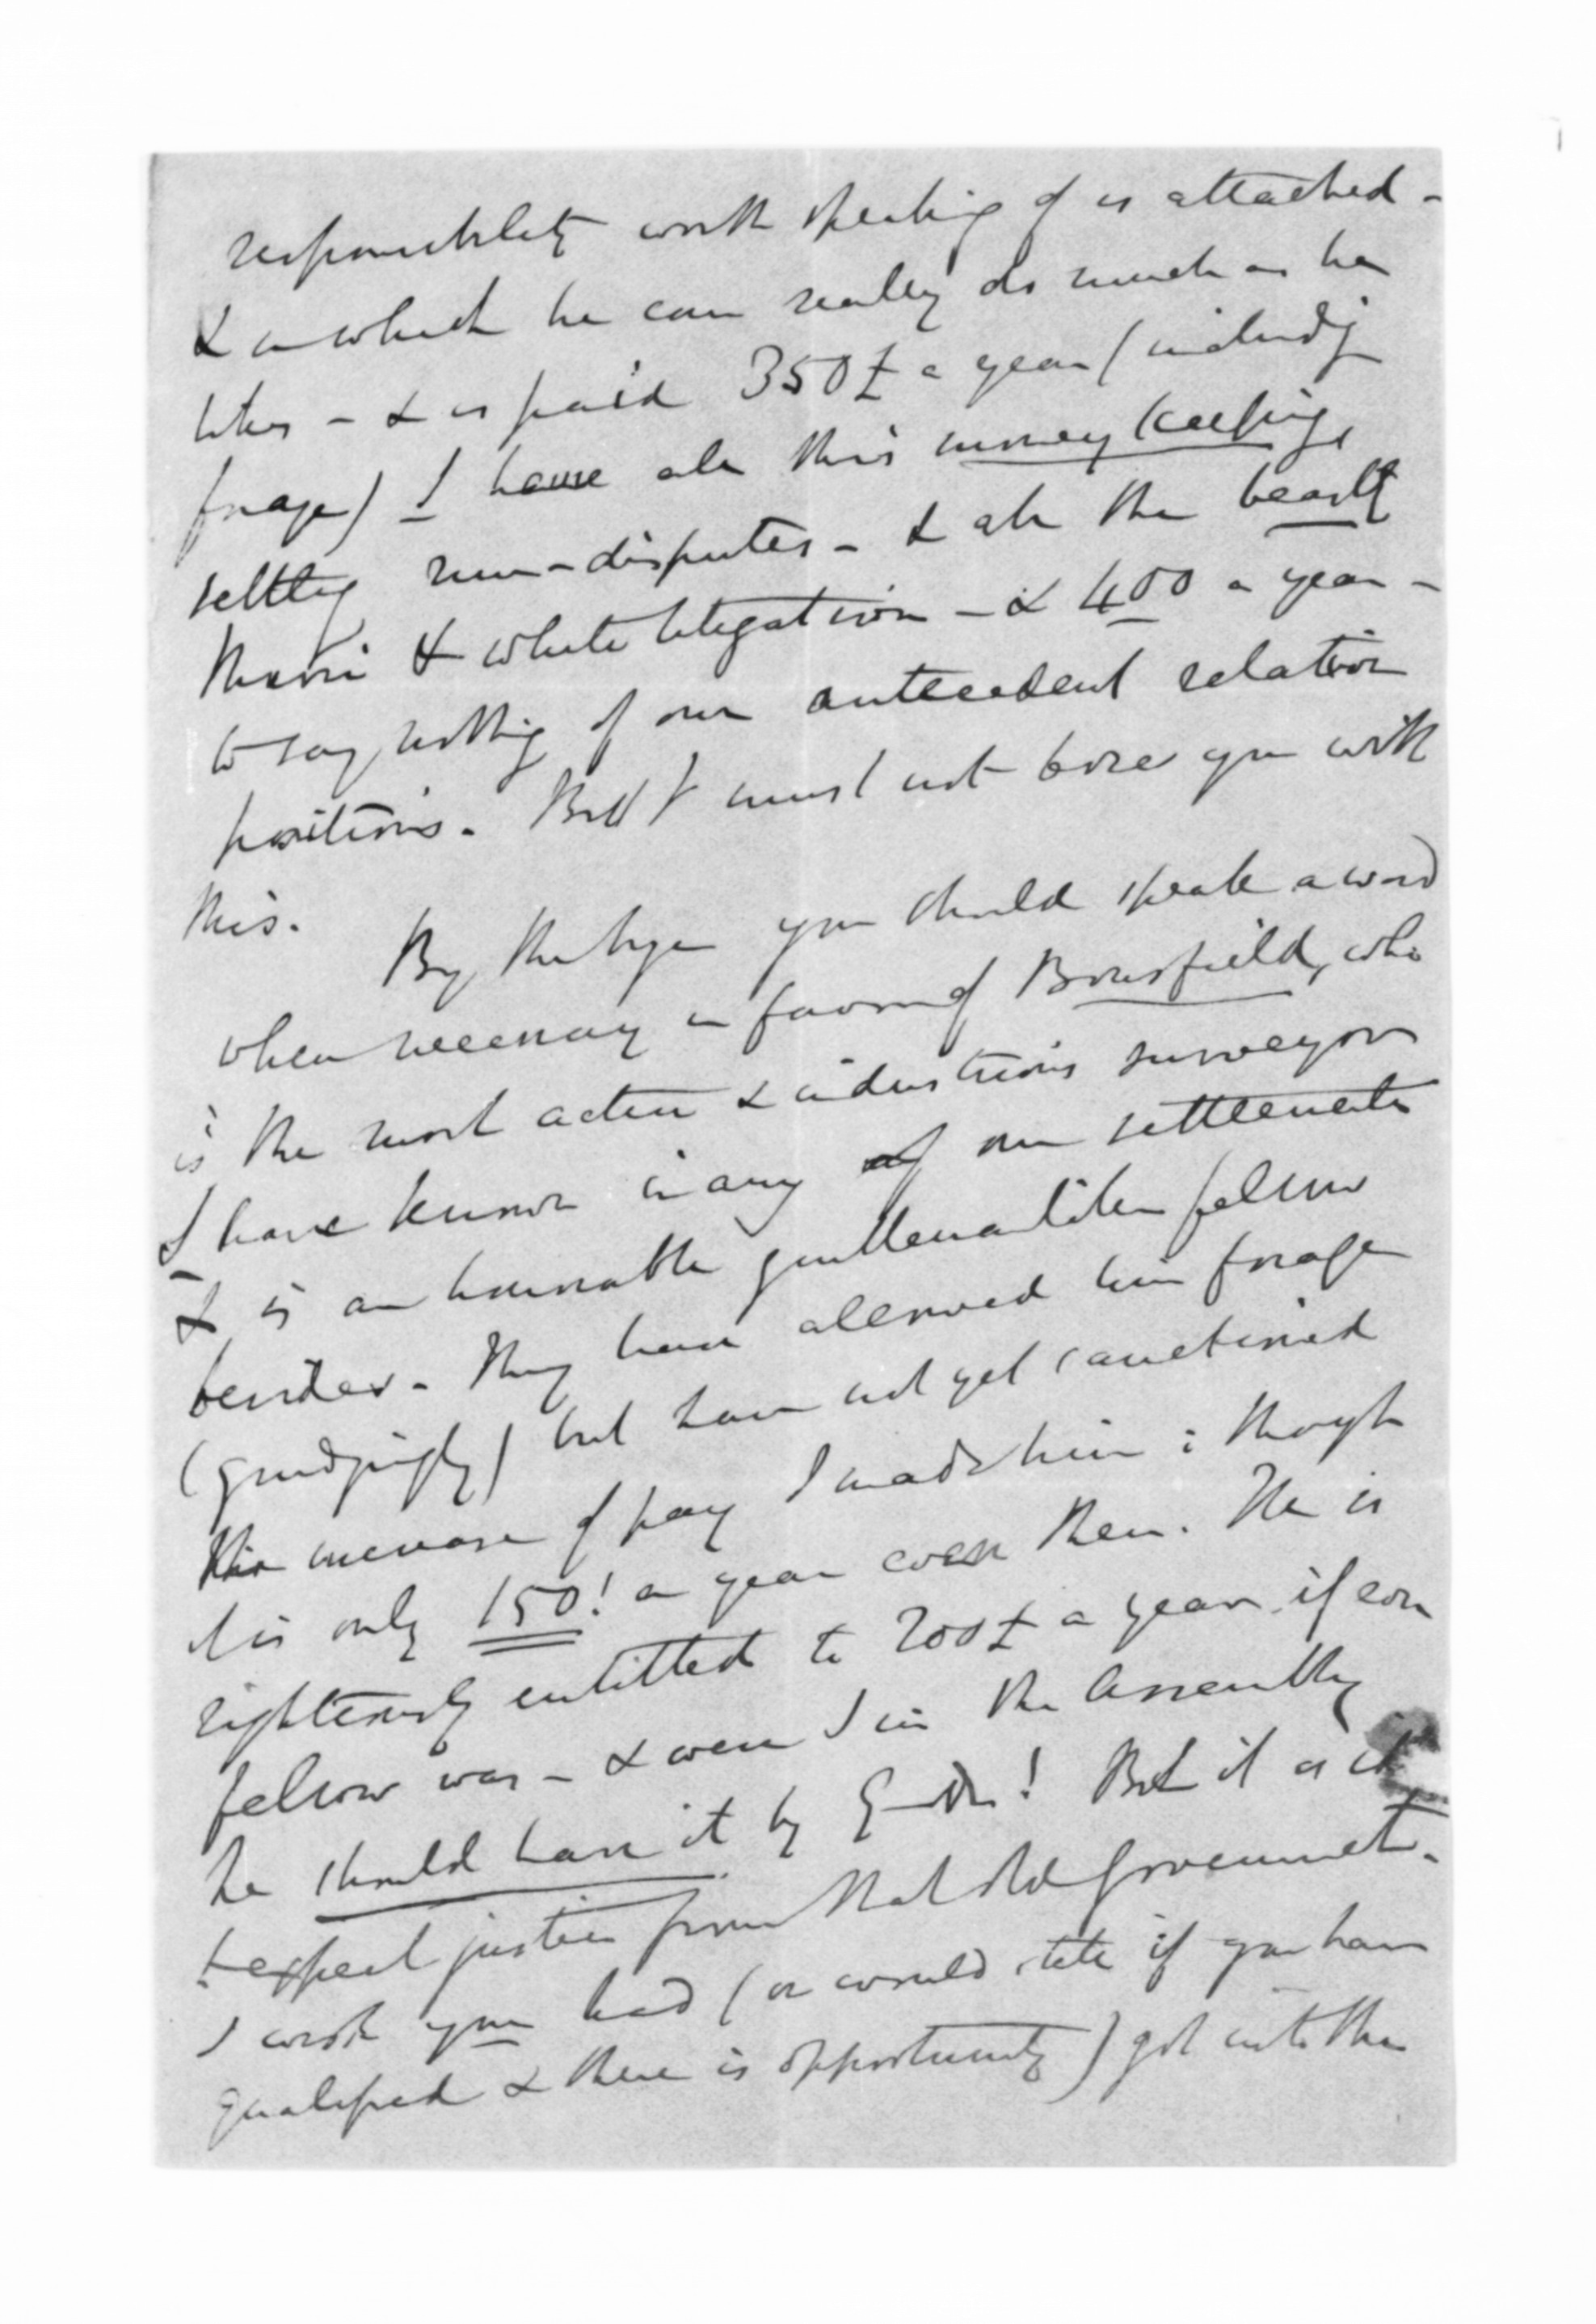 responsibility worth speaking of is attached -
& in which he can really do much as he
likes - & is paid 350£ a year (includg
forage) I have all this money keeping,
settling run-disputes - & all the beastly
Maori & white litigation - & 400 a year -
to say nothing of our antecedent relation
positions. But I must not bore you with
this.
By the bye you should speak a word
when necessary in favour of Bousfield, who
is the most active & industrious surveyor
I have known in any of our settlements
& is an honourable gentlemanlike fellow
besides. They have allowed him forage
(grudgingly) but have not yet sanctioned
the increase of pay I made him: though
it is only 150! a year even then. He is
righteously entitled to 200£ a year if ever
fellow was - & were I in the Assembly
he should have it by G-! But it is
to expect justice from that old Government.
I wish you had (or would still if you have
qualified & there is opportunity) got into the